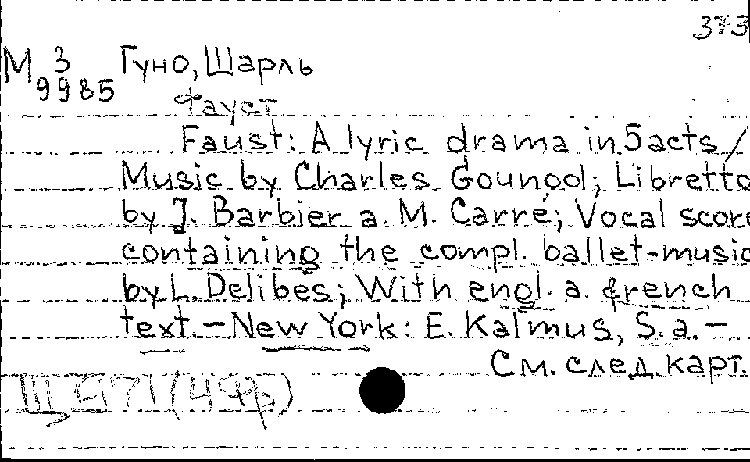 373
М 3 Гуно, Шарль
9985
Фауст
Faust: A lyric drama in 5 acts /
Music by Charles Gounod; Libretto
by J. Barbier a. M. Carré; Vocal score
containing the compl. ballet-music
by L. Delibes; With engl. a. french
text. — New York: E. Kalmus, S. a. —
См. след. карт.
Щ 971(4Фр)